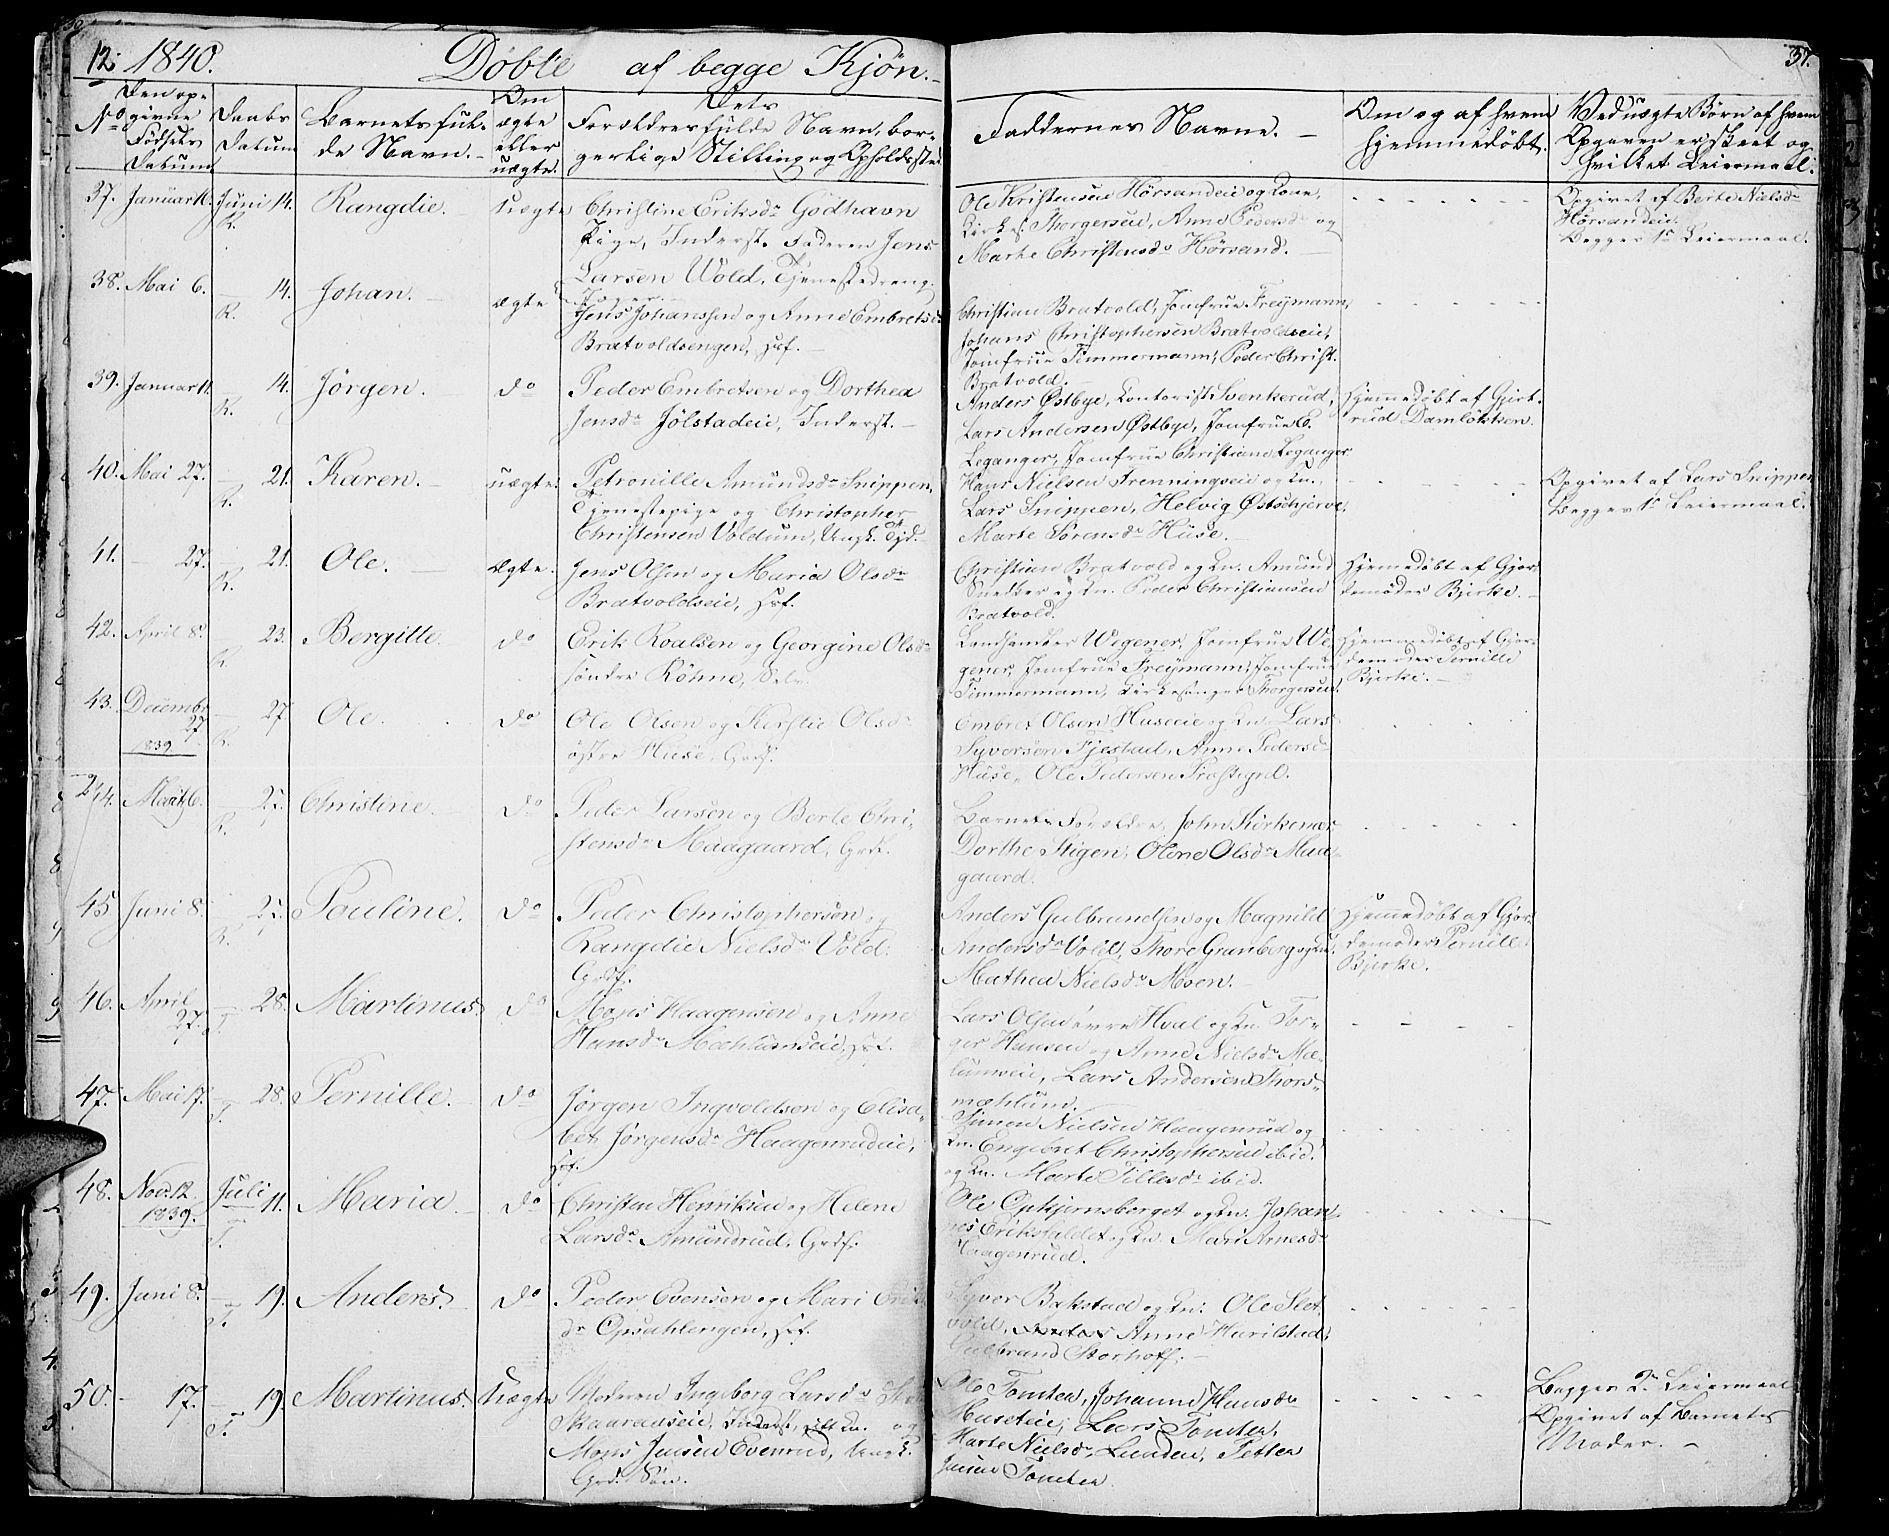 12. 1840. Døbte af begge Kjøn.
37.
No
Den opgivne Fødsels Datum
Daabs Datum
Barnets fulde Navn.
Om ægte eller uægte.
Dets Forældres fulde Navn, borgerlige Stilling og Opholdssted
Faddernes Navne.
Om og af hvem hjemmedøbt.
Ved uægte Børn af hvem Opgaven er skeet og hvilket Leiermaal.
37. Januar Juni 14. Rangdie. Uægte Christine Eriksdr Godhavn
R.
Pige, Inderst. Faderen Jens
Larsen Wold, Tjenestedreng.
Ole Kristensen Hørsandeie og Kone,
Kirkes. Thorgersen, Anne Pedersdr og
Marte Christensdr Hørsand.
Opgivet af Berte Nielsdr
Hørsandeie.
Begges 1ste Leiermaal.
38. Mai 6. 14. Johan. ægte
R.
Jens Johanssen og Anne Embretsdr
Bratvoldsengen, Hsf.
Christian Bratvold, Jomfrue Freymann,
Johans Christophersen Bratvoldseie,
Jomfrue Timmermann, Peder Christ.
Bratvold.
39. Januar 11. 14. Jørgen. do Peder Embretsen og Dorthea
R.
Jensdr Jølstadeie, Inderst.
Anders Østbye, Kontorist Svenkerud,
Lars Andersen Østbye, Jomfrue C.
Leganger, Jomfrue Christiane Leganger
Hjemmedøbt af Gjertrud Damløkken.
40. Mai 27. 21. Karen. uægte. Petronille Amundsdr Snippen,
R.
Tjenestepige og Christopher
Christensen Voldum, Ungk. Tjd.
Hans Nielsen Frenningseie og Kn.
Lars Snippen, Helvig Østschjerve,
Marte Sørensdr Huse.
Opgivet af Lars Snippen
Begges 1ste Leiermaal.
41. 27. 21. Ole. Ægte. Jens Olsen og Maria Olsdr
R.
Bratvoldseie, Hsf.
Christian Bratvold og Kn. Amund
Snedker og Kn. Peder Christiansen
Bratvold.
Hjemmedøbt af Gjordemoder Bjerke.
42. April 8. 23. Bergitte. do Erik Roalsen og Georgine Olsdr
R.
søndre Røhne, Selv.
Landhandler Wegener, Jomfrue Wegener, Jomfrue Freymann, Jomfrue
Timmermann, Kirkesanger Thorgersen.
Hjemmedøbt af Gjordemoder Pernille
Bjerke.
43. Decembr 27. 27. Ole. do Ole Olsen og Kirstie Olsdr
1839. R.
østre Huse, Grdf.
Embret Olsen Huseeie og Kn. Lars
Syversen Fjestad, Anne Pedersdr
Huse, Ole Pedersen Præstegrd.
44. Marts 6. 25. Christine. do Peder Larsen og Berte Christensdr Maagaard, Grdf.
R.
Barnets Forældre, John Kirkenær
Dorthe Stigen, Olene Olsdr Maagaard.
45. Juni 8. 25. Pouline. do Peder Christophersen og
R.
Rangdie Nielsdr Vold.
Grdf.
Anders Gulbrandsen og Magnild
Andersdr Vold, Thore Granberg og Kn.
Mathea Nielsdr Moen.
Hjemmedøbt af Gjordemoder Pernille
Bjerke.
46. April 27. 28. Martinus. do Mons Haagensen og Anne
T.
Hansdr Mæhlumseie, Hsf.
Lars Olsen øvre Hval og Kn. Torger Hansen og Anne Nielsdr Mælumseie, Lars Andersen Thorsmæhlum.
47. Mai 17. 28. Pernille. do Jørgen Ingvoldsen og Elisabet Jørgensdr Haagenrudeie,
T.
Hsf.
Simen Nielsen Haagenrud og
Kn. Engebret Christophersen ibid.
og Kn. Marte Tillesdr ibid.
48. Nov. 12. Juli 11. Maria. do Christen Henriksen og Helene
1839. T.
Larsdr Amundrud, Grdf.
Ole Opkjernsberget og Kn. Johannes Eriksfaldet og Kn. Mari Arnesdr
Haagenrud.
49. Juni 8. 19. Anders. do Peder Evensen og Mari Eriksdr Opsahlengen, Hsf.
T.
Syver Bakstad og Kn. Ole Sletvold, Anne Harilstad,
Gulbrand Storhoff.
50. 17. 19. Martinus. Uægte Moderen Ingeborg Larsdr
T.
Skaaradseie, Inderst, og
Mons Jensen Evenrud, Ungk.
Grd. Søn.
Ole Tomter, Johanne Hansdr
Huseteie, Lars Tomter,
Marte Nielsdr Lunden, Petter
Jensen Tomter.
Begges 2det Leiermaal
Opgivet af Barnets
Moder.